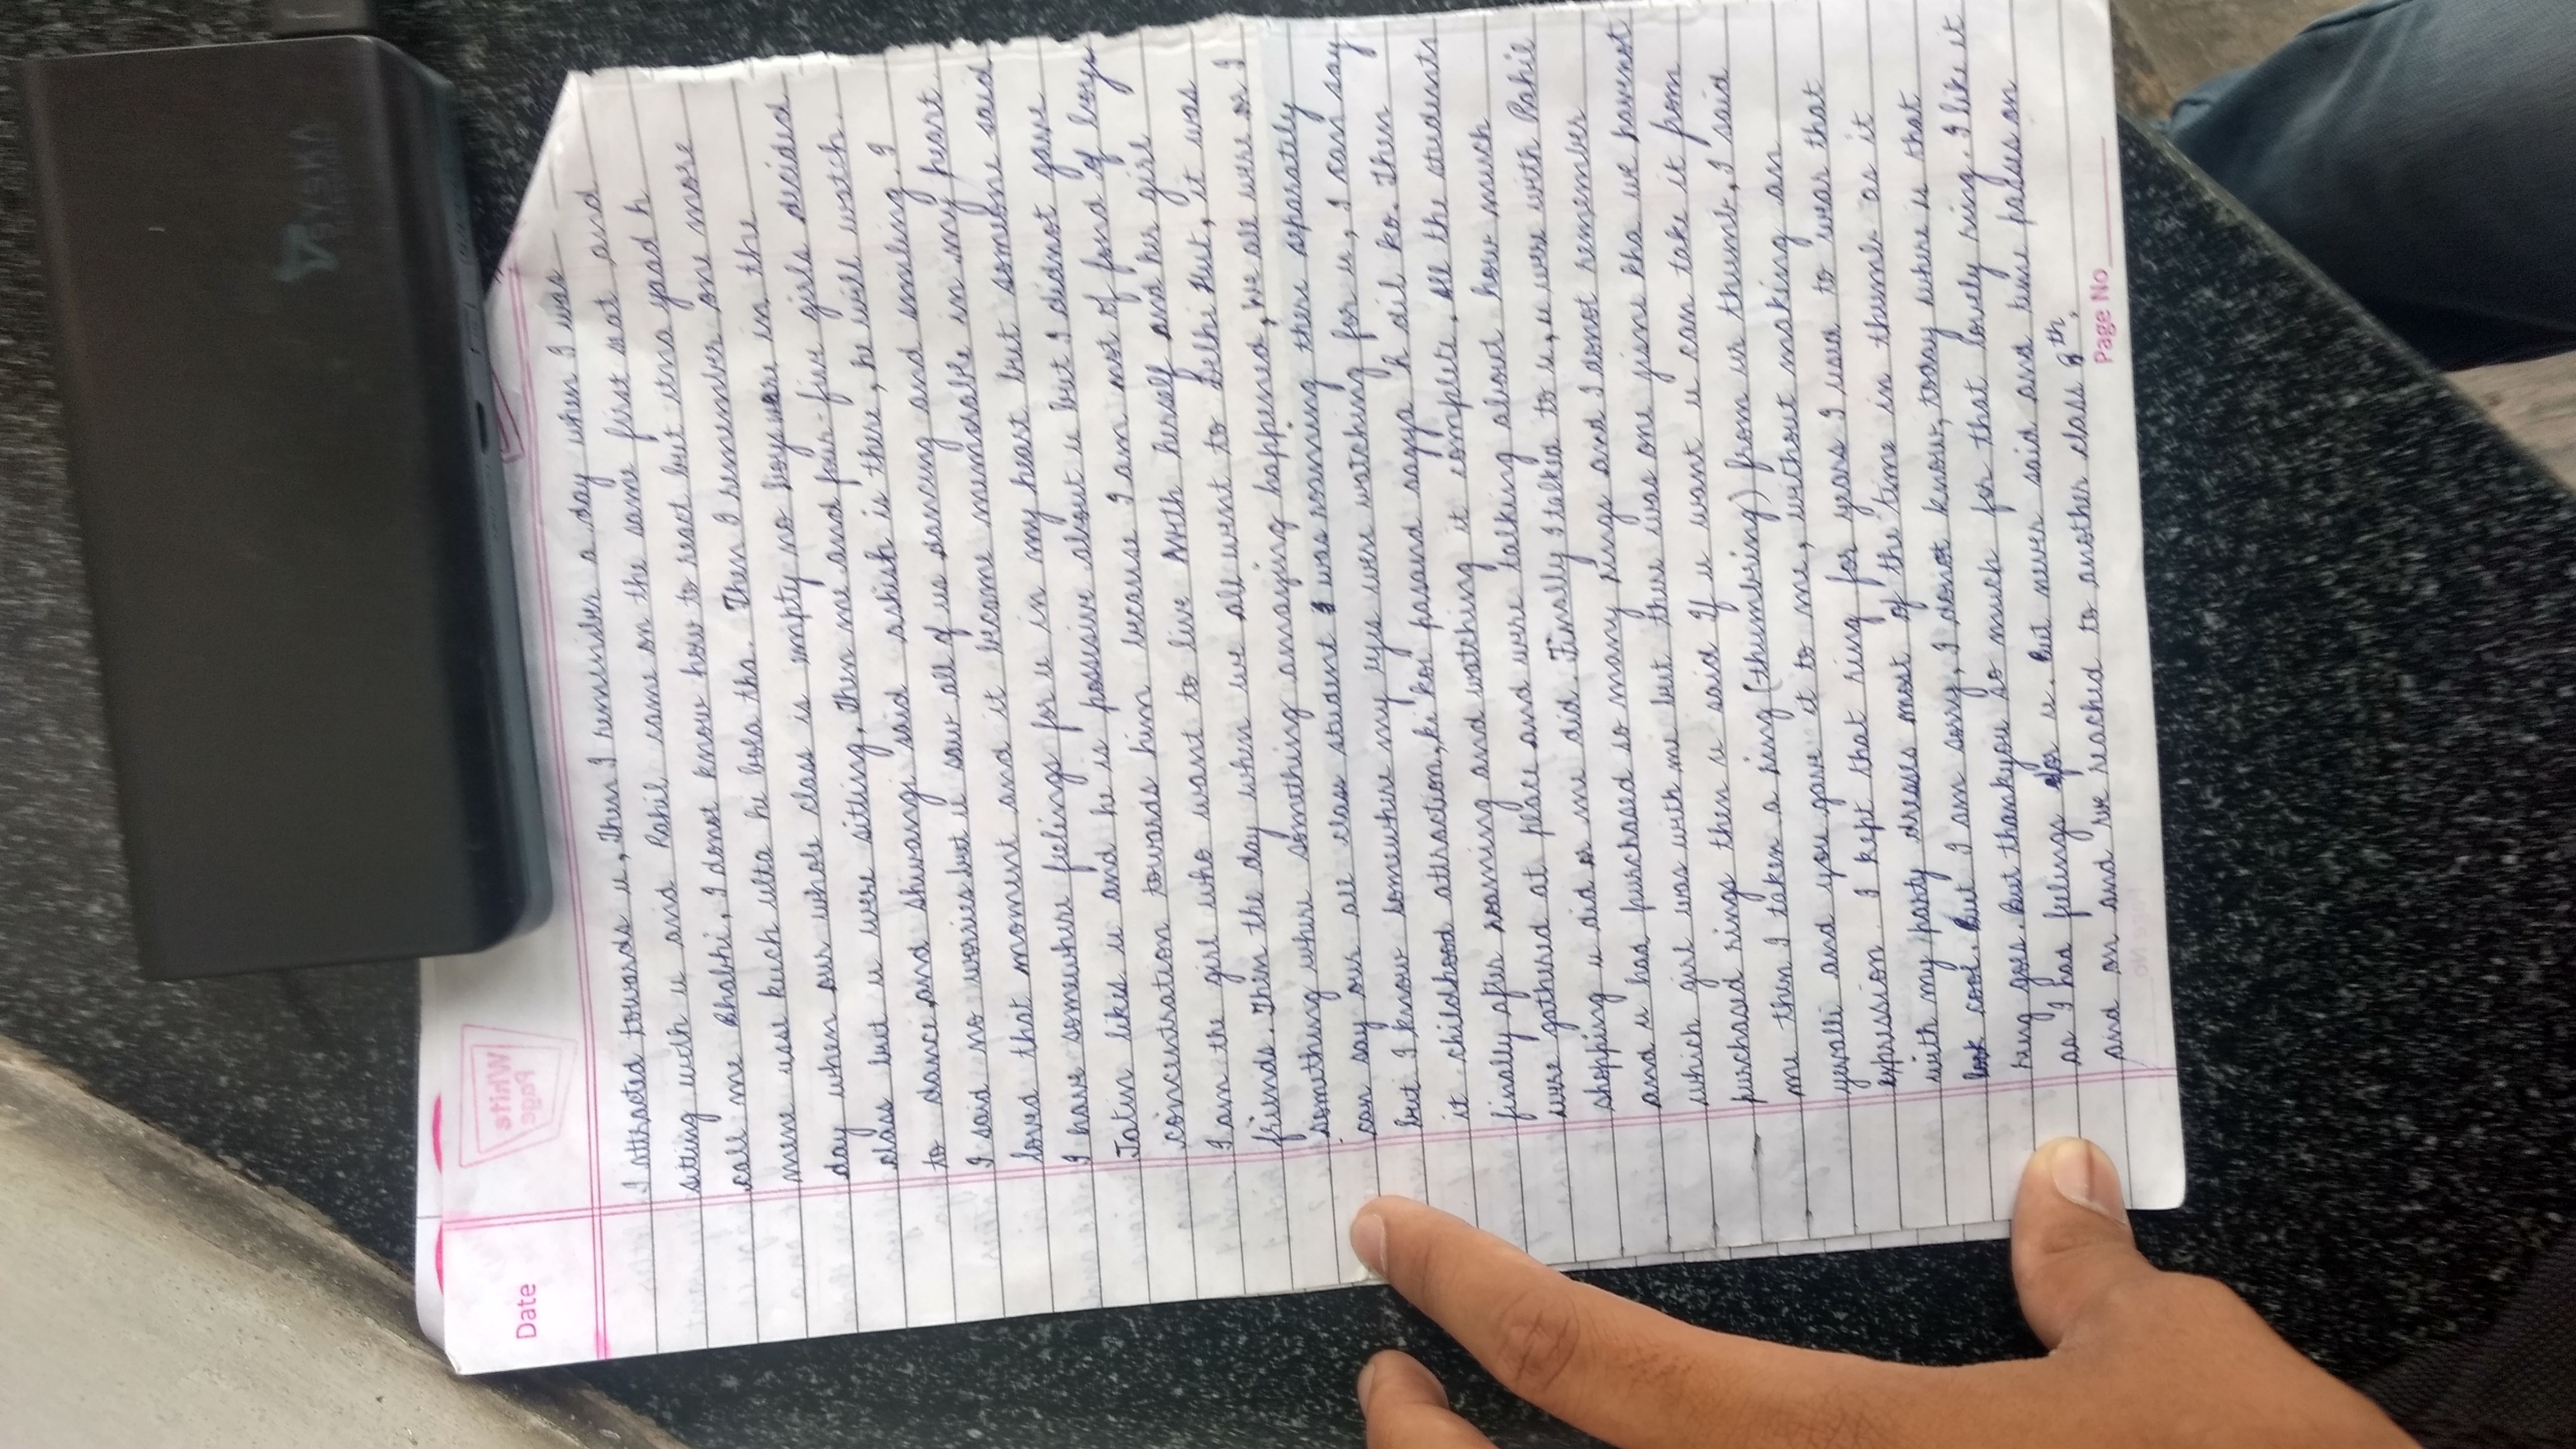 Date
White
Page
I attracted towards u, then I remember a day when I was
sitting with u and Rahil came on the same first seat and
call me Bhabhi, I donot know how to react but itna yaad h
mene usse kuch ulta he bola tha. Then I remember one more
day when our whole class is empty no boy were in the
class but u were sitting, then me and four-five girls decided
to dance and shiwangi said ashish is there, he will watch.
I said no worries but u saw all of us dancing and smiling. I
loved that moment and it become memorable in my heart.
I have somewhere feelings for u in my heart but someone said
Jatin likes u and he is possessive about u but I didnot gave
concentration towards him because I am not of fond of boys
I am the girl who want to live with herself and her girl
friends. Then the day when we all went to Delhi Hut, it was
something where something amazing happened, we all were or I
can say our all class student I was roaming there separately
but I know somewhere my eyes were watching for u, I can say
it childhood attraction, ki koi pasand aagya h dil ko. Then
finally after roaming and watching it complete, all the students
were gathered at place and were talking about how much
shopping u did or me did. Finally I talked to u, u were with Rahil
and u had purchased so many rings and I donot remember
which girl was with me but there was one jisne kha we havenot
purchased rings then u said If u want u can take it from
me then I taken a ring (thumbring) from ur thumb, I said
yewalli and you gave it to me, without making an
expression. I kept that ring for years I used to wear that
with my party dresses most of the time in thumb as it
look cool. But I am sorry, I donot know, today where is that
ring goes. but thankyou so much for that lovely ring. I like it
as I had feelings for u. But never said and time passes on
and on and we reached to another class 8th.
Page No